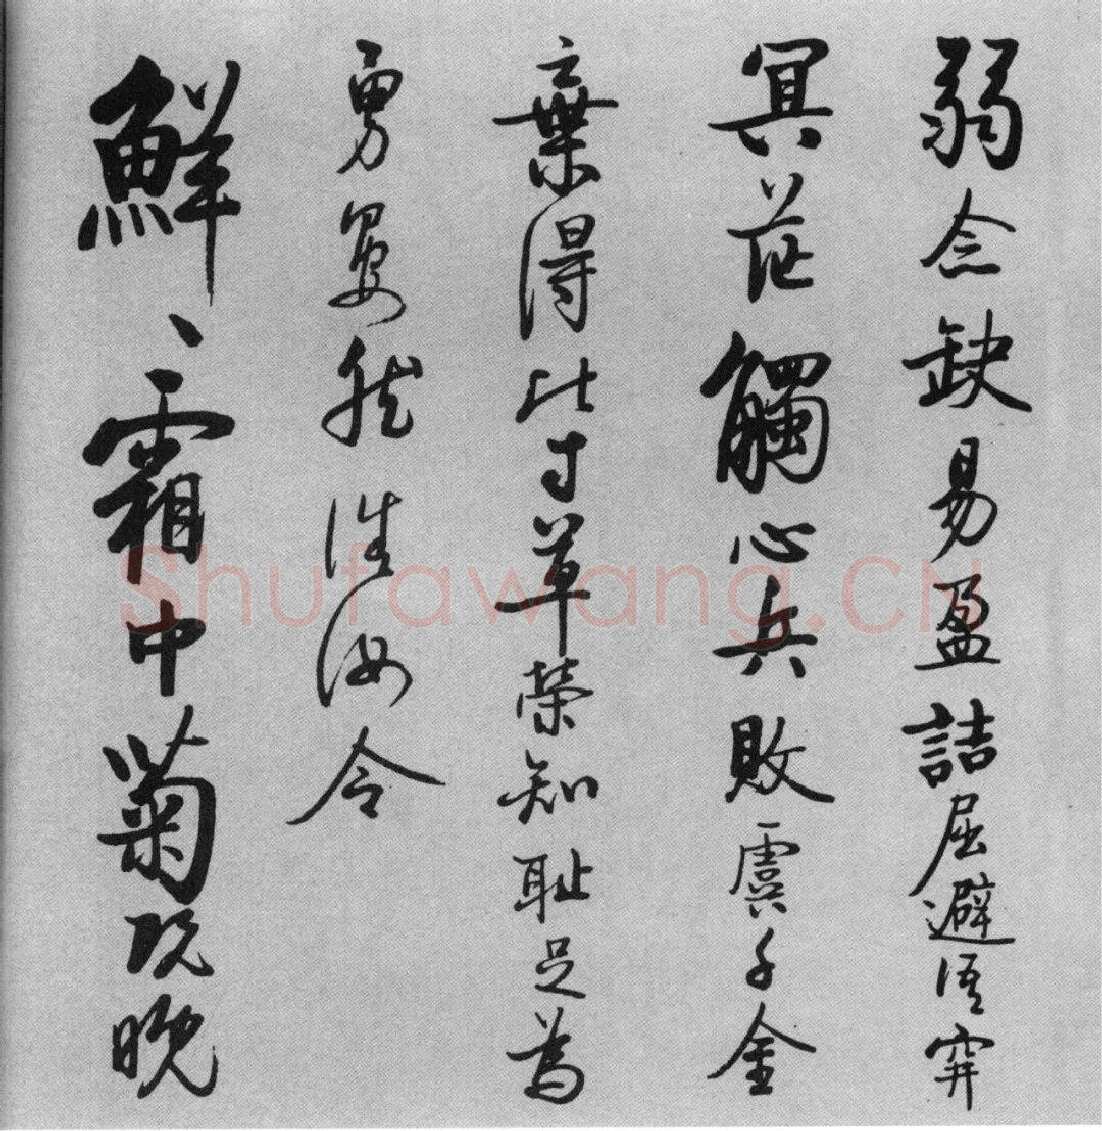 弱念缺易盈詰屈避語穽
冥茫觸心兵敗虞千金
棄得比寸草榮知耻足為
勇晏然誰汝令
鮮〻霜中菊既晚
Shufawang.CN